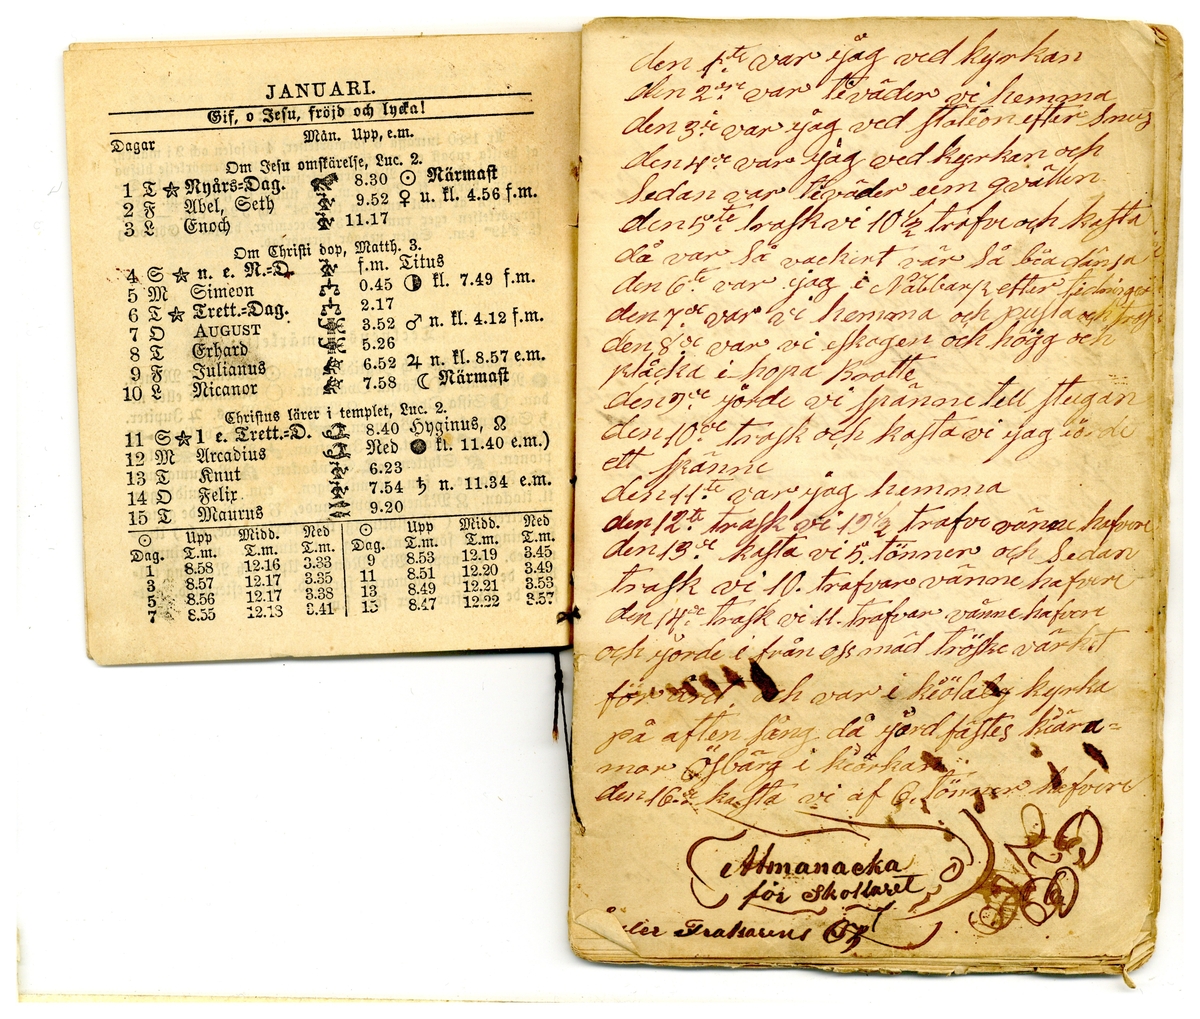 JANUARI.
Gif, o Jesu, fröjd och lycka!
Dagar Mån. Upp, e.m.
Om Jesu omskärelse, Luc. 2.
1 T ☆ Nyårs-Dag. 8.30 ☉ Närmast
2 F Abel, Seth 9.52 ♀ u. kl. 4.56 f.m.
3 L Enoch 11.17
Om Christi dop, Matth. 3.
4 S ☆ n. e. N.-D. f.m. Titus
5 M Simeon 0.45 ◑ kl. 7.49 f.m.
6 T ☆ Trett.-Dag. 2.17
7 O AUGUST 3.52 ♂ n. kl. 4.12 f.m.
8 T Erhard 5.26
9 F Julianus 6.52 ♃ n. kl. 8.57 e.m.
10 L Nicanor 7.58 ☾ Närmast
Christus lärer i templet, Luc. 2.
11 S ☆ 1 e. Trett.-D. 8.40 Hyginus, ☊
12 M Arcadius Ned ● kl. 11.40 e.m.)
13 T Knut 6.23
14 O Felix 7.54 ♄ n. 11.34 e.m.
15 T Maurus 9.20
☉ Upp Midd. Ned ☉ Upp Midd. Ned
Dag. T.m. T.m. T.m. Dag. T.m. T.m. T.m.
1 8.58 12.16 3.33 9 8.53 12.19 3.45
3 8.57 12.17 3.35 11 8.51 12.20 3.49
5 8.56 12.17 3.38 13 8.49 12.21 3.53
7 8.55 12.18 3.41 15 8.47 12.22 3.57
den 1te var jag ved kyrkan
den 2dre var teväder vi hemma
den 3de var jag ved station efter
den 4de var jag ved kyrkan och
sedan var teväder eem qvällen
den 5te trask vi 10 1/2 trafve och kasta
då var så vackert vär så
den 6te var jag i Nabbarp efter tidninger
den 7de var vi hemma och pusta och
den 8de var vi skogen och högg och
kläcka i hopa Kratte
den 9de jörde vi spänne tell stugan
den 10de trask och kasta vi jag jörde
ett spänne
den 11te var jag hemma
den 12te trask vi 12 1/2 trafve vänne hafvere
den 13de kasta vi 5 tönner och Sedan
trask vi 10. trafvar vänne hafvere
den 14de trask vi 11. trafvar vänne hafvere
och jörde i från oss mäd tröske värket
för och var i kiölaby kyrka
på aften sång då jordfästes kiära=
mor Ösbärg i kiörkan
den 16de kasta vi af 6. tönner hafvere
Almanacka
för Skollaret